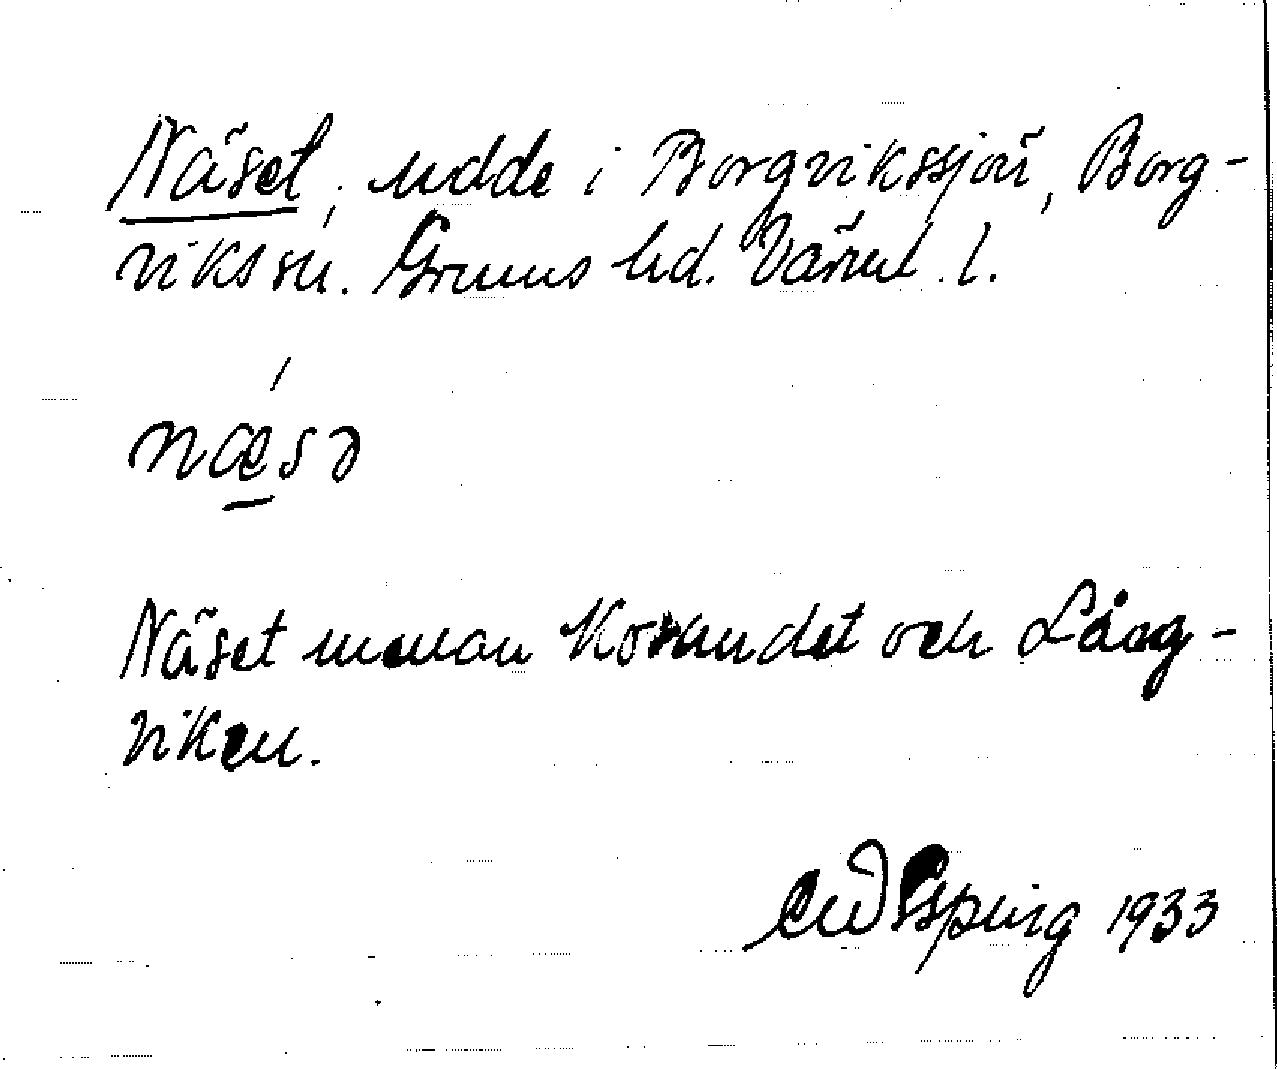 Näset, udde i Borgvikssjön, Borg-
viks sn. Grums hd. Värml. l.
næsə
Näset mellan Kosundet och Lång-
viken.
Espling 1933